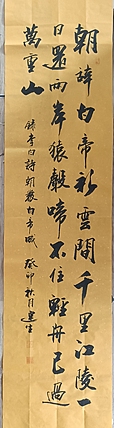 朝辭白帝彩雲間千里江陵一
日還兩岸猿聲啼不住輕舟已過
萬重山
錄李白詩朝發白帝城 癸卯秋月建生